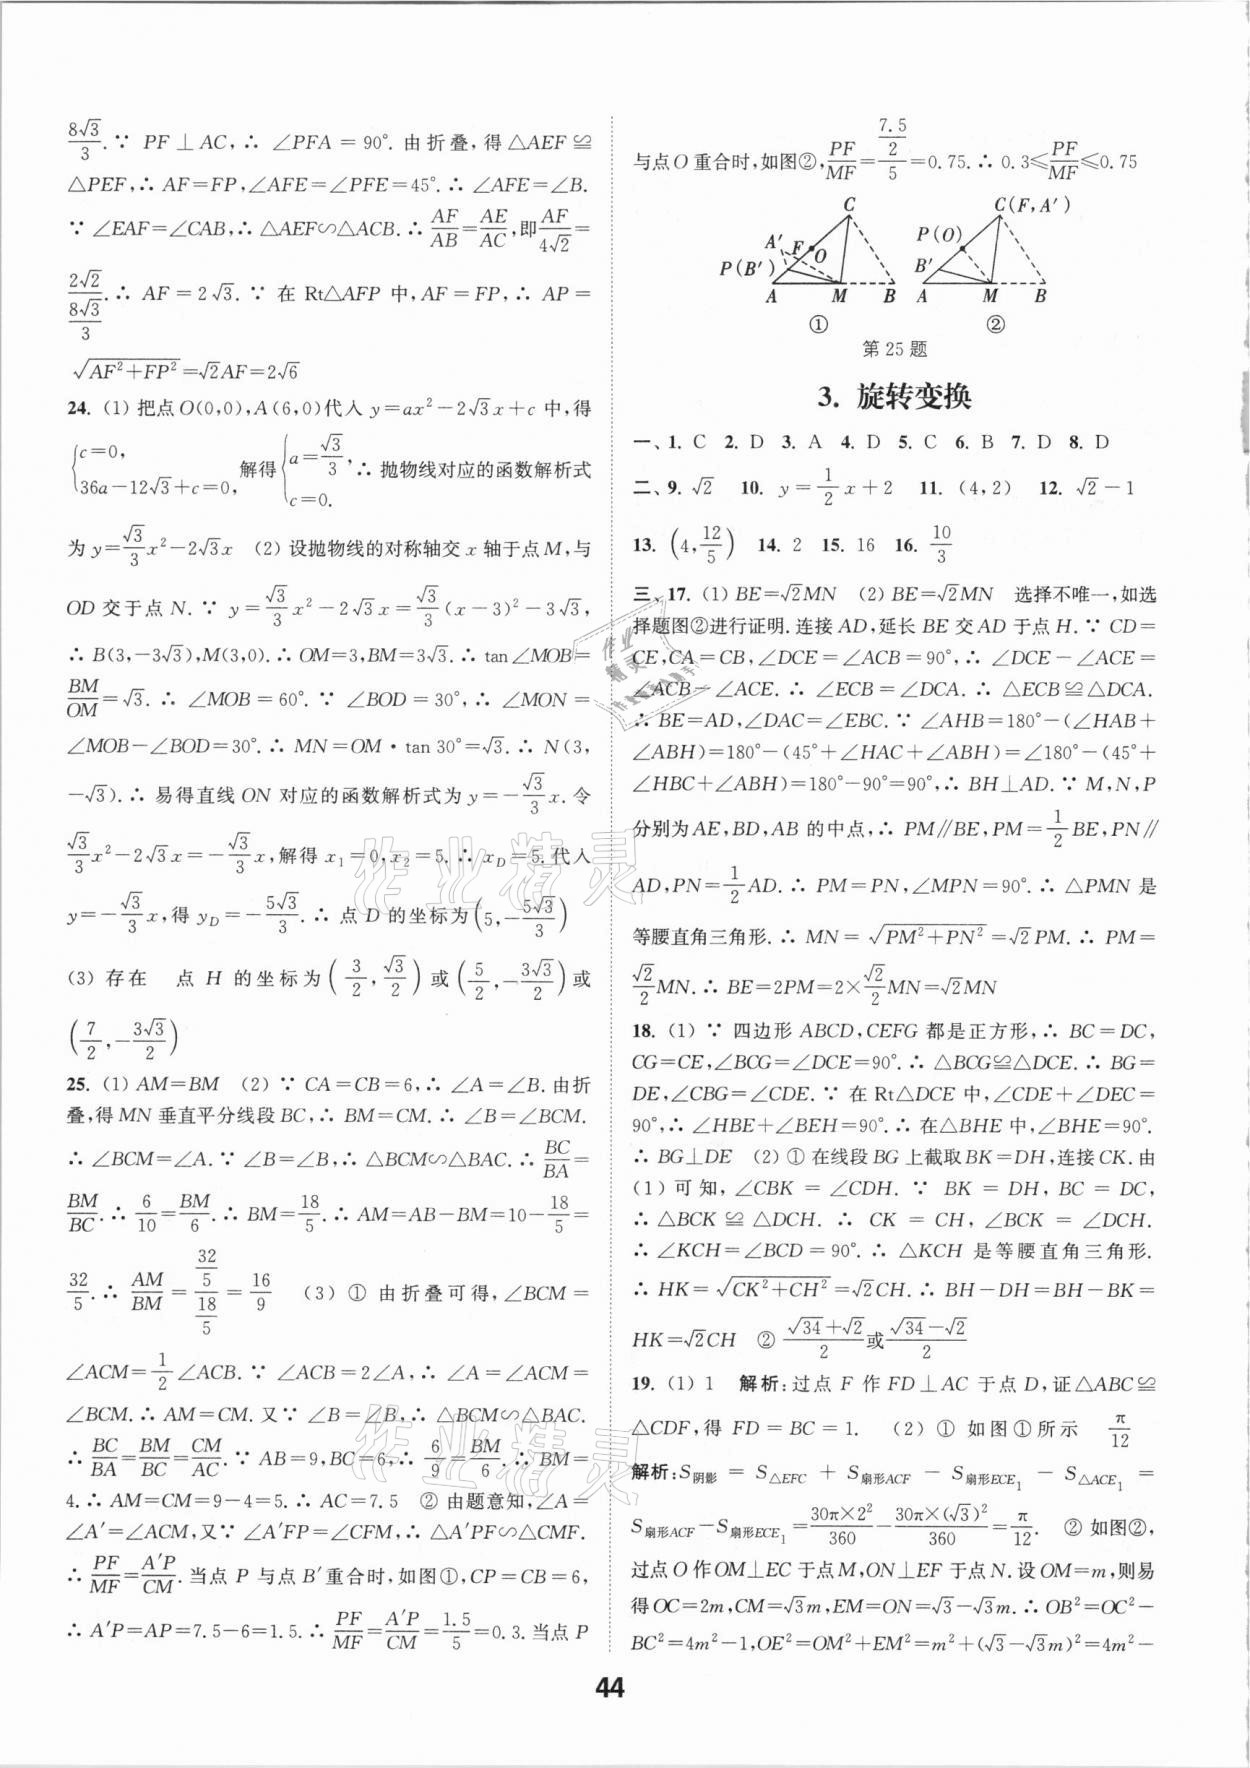 8√3/3.∵ PF⊥AC,∴ ∠PFA=90°.由折叠,得△AEF≌
△PEF,∴ AF=FP,∠AFE=∠PFE=45°.∴ ∠AFE=∠B.
∵ ∠EAF=∠CAB,∴ △AEF∽△ACB.∴ AF/AB=AE/AC,即AF/4√2=
2√2/(8√3/3).∴ AF=2√3.∵ 在 Rt△AFP 中,AF=FP,∴ AP=
√(AF²+FP²)=√2AF=2√6
24. (1) 把点O(0,0),A(6,0)代入 y=ax²-2√3x+c 中,得
{c=0, 36a-12√3+c=0, 解得{a=√3/3, c=0. ∴ 抛物线对应的函数解析式
为 y=√3/3x²-2√3x (2) 设抛物线的对称轴交 x 轴于点M,与
OD 交于点 N.∵ y=√3/3x²-2√3x=√3/3(x-3)²-3√3,
∴ B(3,-3√3),M(3,0).∴ OM=3,BM=3√3.∴ tan∠MOB=
BM/OM=√3.∴ ∠MOB=60°.∵ ∠BOD=30°,∴ ∠MON=
∠MOB-∠BOD=30°.∴ MN=OM·tan 30°=√3.∴ N(3,
-√3).∴ 易得直线 ON 对应的函数解析式为 y=-√3/3x.令
√3/3x²-2√3x=-√3/3x,解得 x₁=0,x₂=5.∴ x_D=5.代入
y=-√3/3x,得 y_D=-5√3/3.∴ 点 D 的坐标为(5,-5√3/3)
(3) 存在 点 H 的坐标为(3/2,√3/2)或(5/2,-3√3/2)或
(7/2,-3√3/2)
25. (1) AM=BM (2) ∵ CA=CB=6,∴ ∠A=∠B.由折
叠,得MN垂直平分线段BC,∴ BM=CM.∴ ∠B=∠BCM.
∴ ∠BCM=∠A.∵ ∠B=∠B,∴ △BCM∽△BAC.∴ BC/BA=
BM/BC.∴ 6/10=BM/6.∴ BM=18/5.∴ AM=AB-BM=10-18/5=
32/5.∴ AM/BM=(32/5)/(18/5)=16/9 (3) ① 由折叠可得,∠BCM=
∠ACM=1/2∠ACB.∵ ∠ACB=2∠A,∴ ∠A=∠ACM=
∠BCM.∴ AM=CM.又∵ ∠B=∠B,∴ △BCM∽△BAC.
∴ BC/BA=BM/BC=CM/AC.∵ AB=9,BC=6,∴ 6/9=BM/6.∴ BM=
4.∴ AM=CM=9-4=5.∴ AC=7.5 ② 由题意知,∠A=
∠A′=∠ACM,又∵ ∠A′FP=∠CFM,∴ △A′PF∽△CMF.
∴ PF/MF=A′P/CM.当点 P 与点 B′重合时,如图①,CP=CB=6,
∴ A′P=AP=7.5-6=1.5.∴ PF/MF=A′P/CM=1.5/5=0.3.当点 P
与点O重合时,如图②,PF/MF=(7.5/2)/5=0.75.∴ 0.3≤PF/MF≤0.75
C A′ F O P(B′) A M B
①
C(F,A′) P(O) B′ A M B
②
第 25 题
3. 旋转变换
一、1. C 2. D 3. A 4. D 5. C 6. B 7. D 8. D
二、9. √2 10. y=1/2x+2 11. (4,2) 12. √2-1
13. (4,12/5) 14. 2 15. 16 16. 10/3
三、17. (1) BE=√2MN (2) BE=√2MN 选择不唯一,如选
择题图②进行证明.连接 AD,延长 BE 交 AD 于点 H.∵ CD=
CE,CA=CB,∠DCE=∠ACB=90°,∴ ∠DCE-∠ACE=
∠ACB-∠ACE.∴ ∠ECB=∠DCA.∴ △ECB≌△DCA.
∴ BE=AD,∠DAC=∠EBC.∵ ∠AHB=180°-(∠HAB+
∠ABH)=180°-(45°+∠HAC+∠ABH)=∠180°-(45°+
∠HBC+∠ABH)=180°-90°=90°,∴ BH⊥AD.∵ M,N,P
分别为 AE,BD,AB 的中点,∴ PM∥BE,PM=1/2BE,PN∥
AD,PN=1/2AD.∴ PM=PN,∠MPN=90°.∴ △PMN 是
等腰直角三角形.∴ MN=√(PM²+PN²)=√2PM.∴ PM=
√2/2MN.∴ BE=2PM=2×√2/2MN=√2MN
18. (1) ∵ 四边形 ABCD,CEFG 都是正方形,∴ BC=DC,
CG=CE,∠BCG=∠DCE=90°.∴ △BCG≌△DCE.∴ BG=
DE,∠CBG=∠CDE.∵ 在 Rt△DCE 中,∠CDE+∠DEC=
90°,∴ ∠HBE+∠BEH=90°.∴ 在△BHE 中,∠BHE=90°.
∴ BG⊥DE (2) ① 在线段 BG 上截取 BK=DH,连接 CK.由
(1) 可知,∠CBK=∠CDH.∵ BK=DH,BC=DC,
∴ △BCK≌△DCH.∴ CK=CH,∠BCK=∠DCH.
∴ ∠KCH=∠BCD=90°.∴ △KCH 是等腰直角三角形.
∴ HK=√(CK²+CH²)=√2CH.∴ BH-DH=BH-BK=
HK=√2CH ② (√34+√2)/2或(√34-√2)/2
19. (1) 1 解析:过点 F 作 FD⊥AC 于点 D,证△ABC≌
△CDF,得 FD=BC=1. (2) ① 如图①所示 π/12
解析:S阴影=S△EFC+S扇形ACF-S扇形ECE₁-S△ACE₁=
S扇形ACF-S扇形ECE₁=30π×2²/360-30π×(√3)²/360=π/12. ② 如图②,
过点 O 作 OM⊥EC 于点 M,ON⊥EF 于点 N.设 OM=m,则易
得OC=2m,CM=√3m,EM=ON=√3-√3m.∴ OB²=OC²-
BC²=4m²-1,OE²=OM²+EM²=m²+(√3-√3m)²=4m²-
44
作业精灵
作业精灵
作业精灵